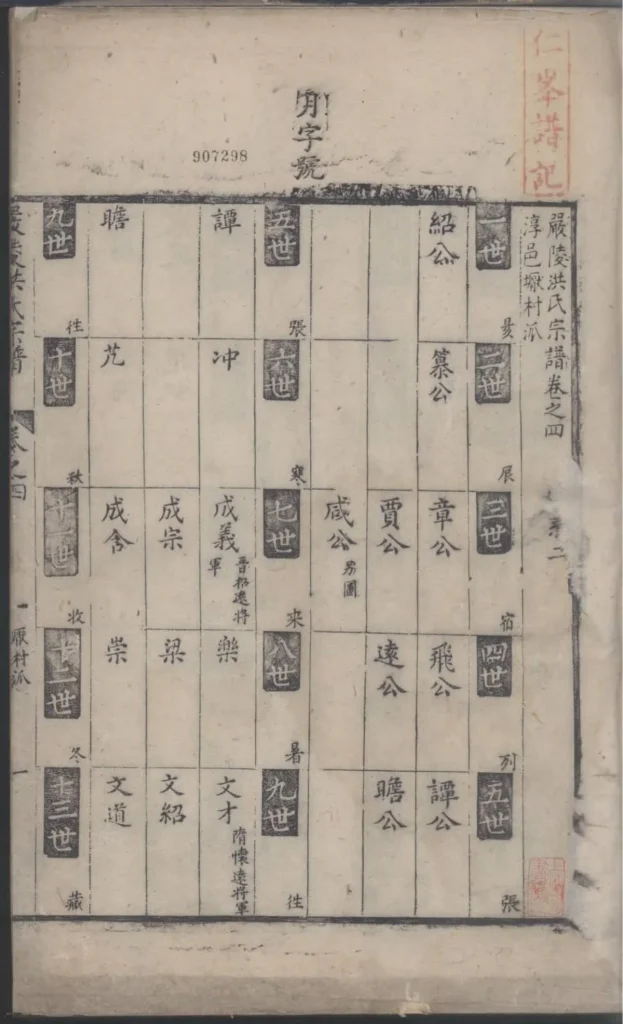 仁峯譜記
月字號
907298
嚴陵洪氏宗譜卷之四
淳邑塬村派
一世
昃
二世
辰
三世
宿
四世
列
五世
張
紹公
慕公
章公
飛公
譚公
賈公
遠公
瞻公
咸公
另圖
五世
張
六世
寒
七世
来
八世
暑
九世
往
譚
冲
成義
晋招遠將軍
樂
文才
隋懷遠將軍
成宗
梁
文紹
瞻
艽
成舍
崇
文道
九世
往
十世
秋
十一世
收
十二世
冬
十三世
藏
嚴陵洪氏宗譜
卷之四
塬村派
一